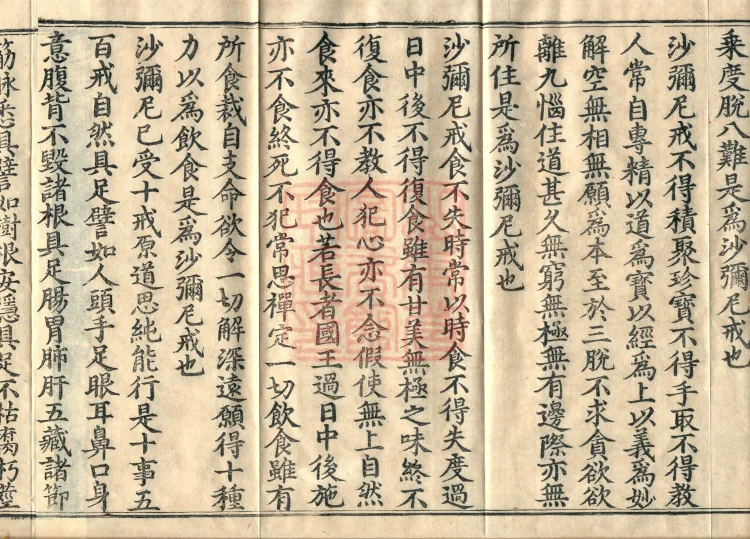 乗度脫八難是為沙彌尼戒也
沙彌尼戒不得積聚珍寶不得手取不得教
人常自專精以道為寶以經為上以義為妙
解空無相無願為本至於三脫不求貪欲欲
離九惱住道甚久無窮無極無有邊際亦無
所住是為沙彌尼戒也
沙彌尼戒食不失時常以時食不得失度過
日中後不得復食雖有甘美無極之味終不
復食亦不教人犯心亦不念假使無上自然
食來亦不得食也若長者國王過日中後施
亦不食終死不犯常思禪定一切飲食雖有
所食裁自支命欲令一切解深遠願得十種
力以為飲食是為沙彌尼戒也
沙彌尼已受十戒原道思純能行是十事五
百戒自然具足譬如人頭手足眼耳鼻口身
意腹背不毀諸根具足腸胃肺肝五藏諸節
筋脉悉具譬如樹根安隱具足不枯腐朽莖